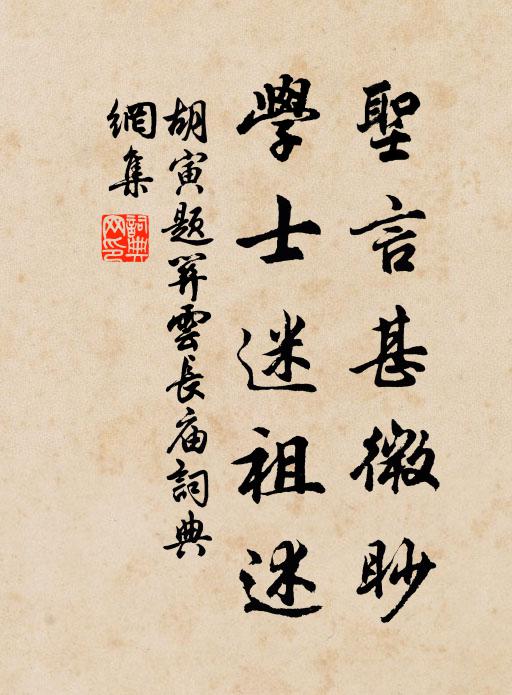 聖言甚微眇
學士迷祖述
胡寅題關雲長庙詞典
網集
詞典
网印